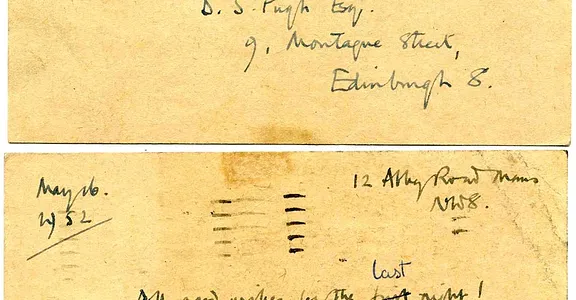 D. S. Pugh Esq.
9, Montague Street,
Edinburgh 8.
May 16.
1952
12 Abbey Road Mans
NW8.
last
All good wishes for the first night!